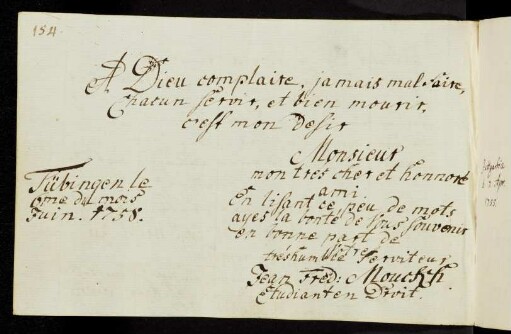 184.
A Dieu complaire, jamais mal-faire,
Chacun servir, et bien mourir,
c'est mon desir
Monsieur
mon tres cher et honnoré
ami
En lisant ce peu de mots
ayes la bonté de Vous souvenir
en bonne part de
Vôtre
tréshumble Serviteur
Jean Fred:
Etudiant en Droit.
Tübingen le
du mois
Juin. 1758.